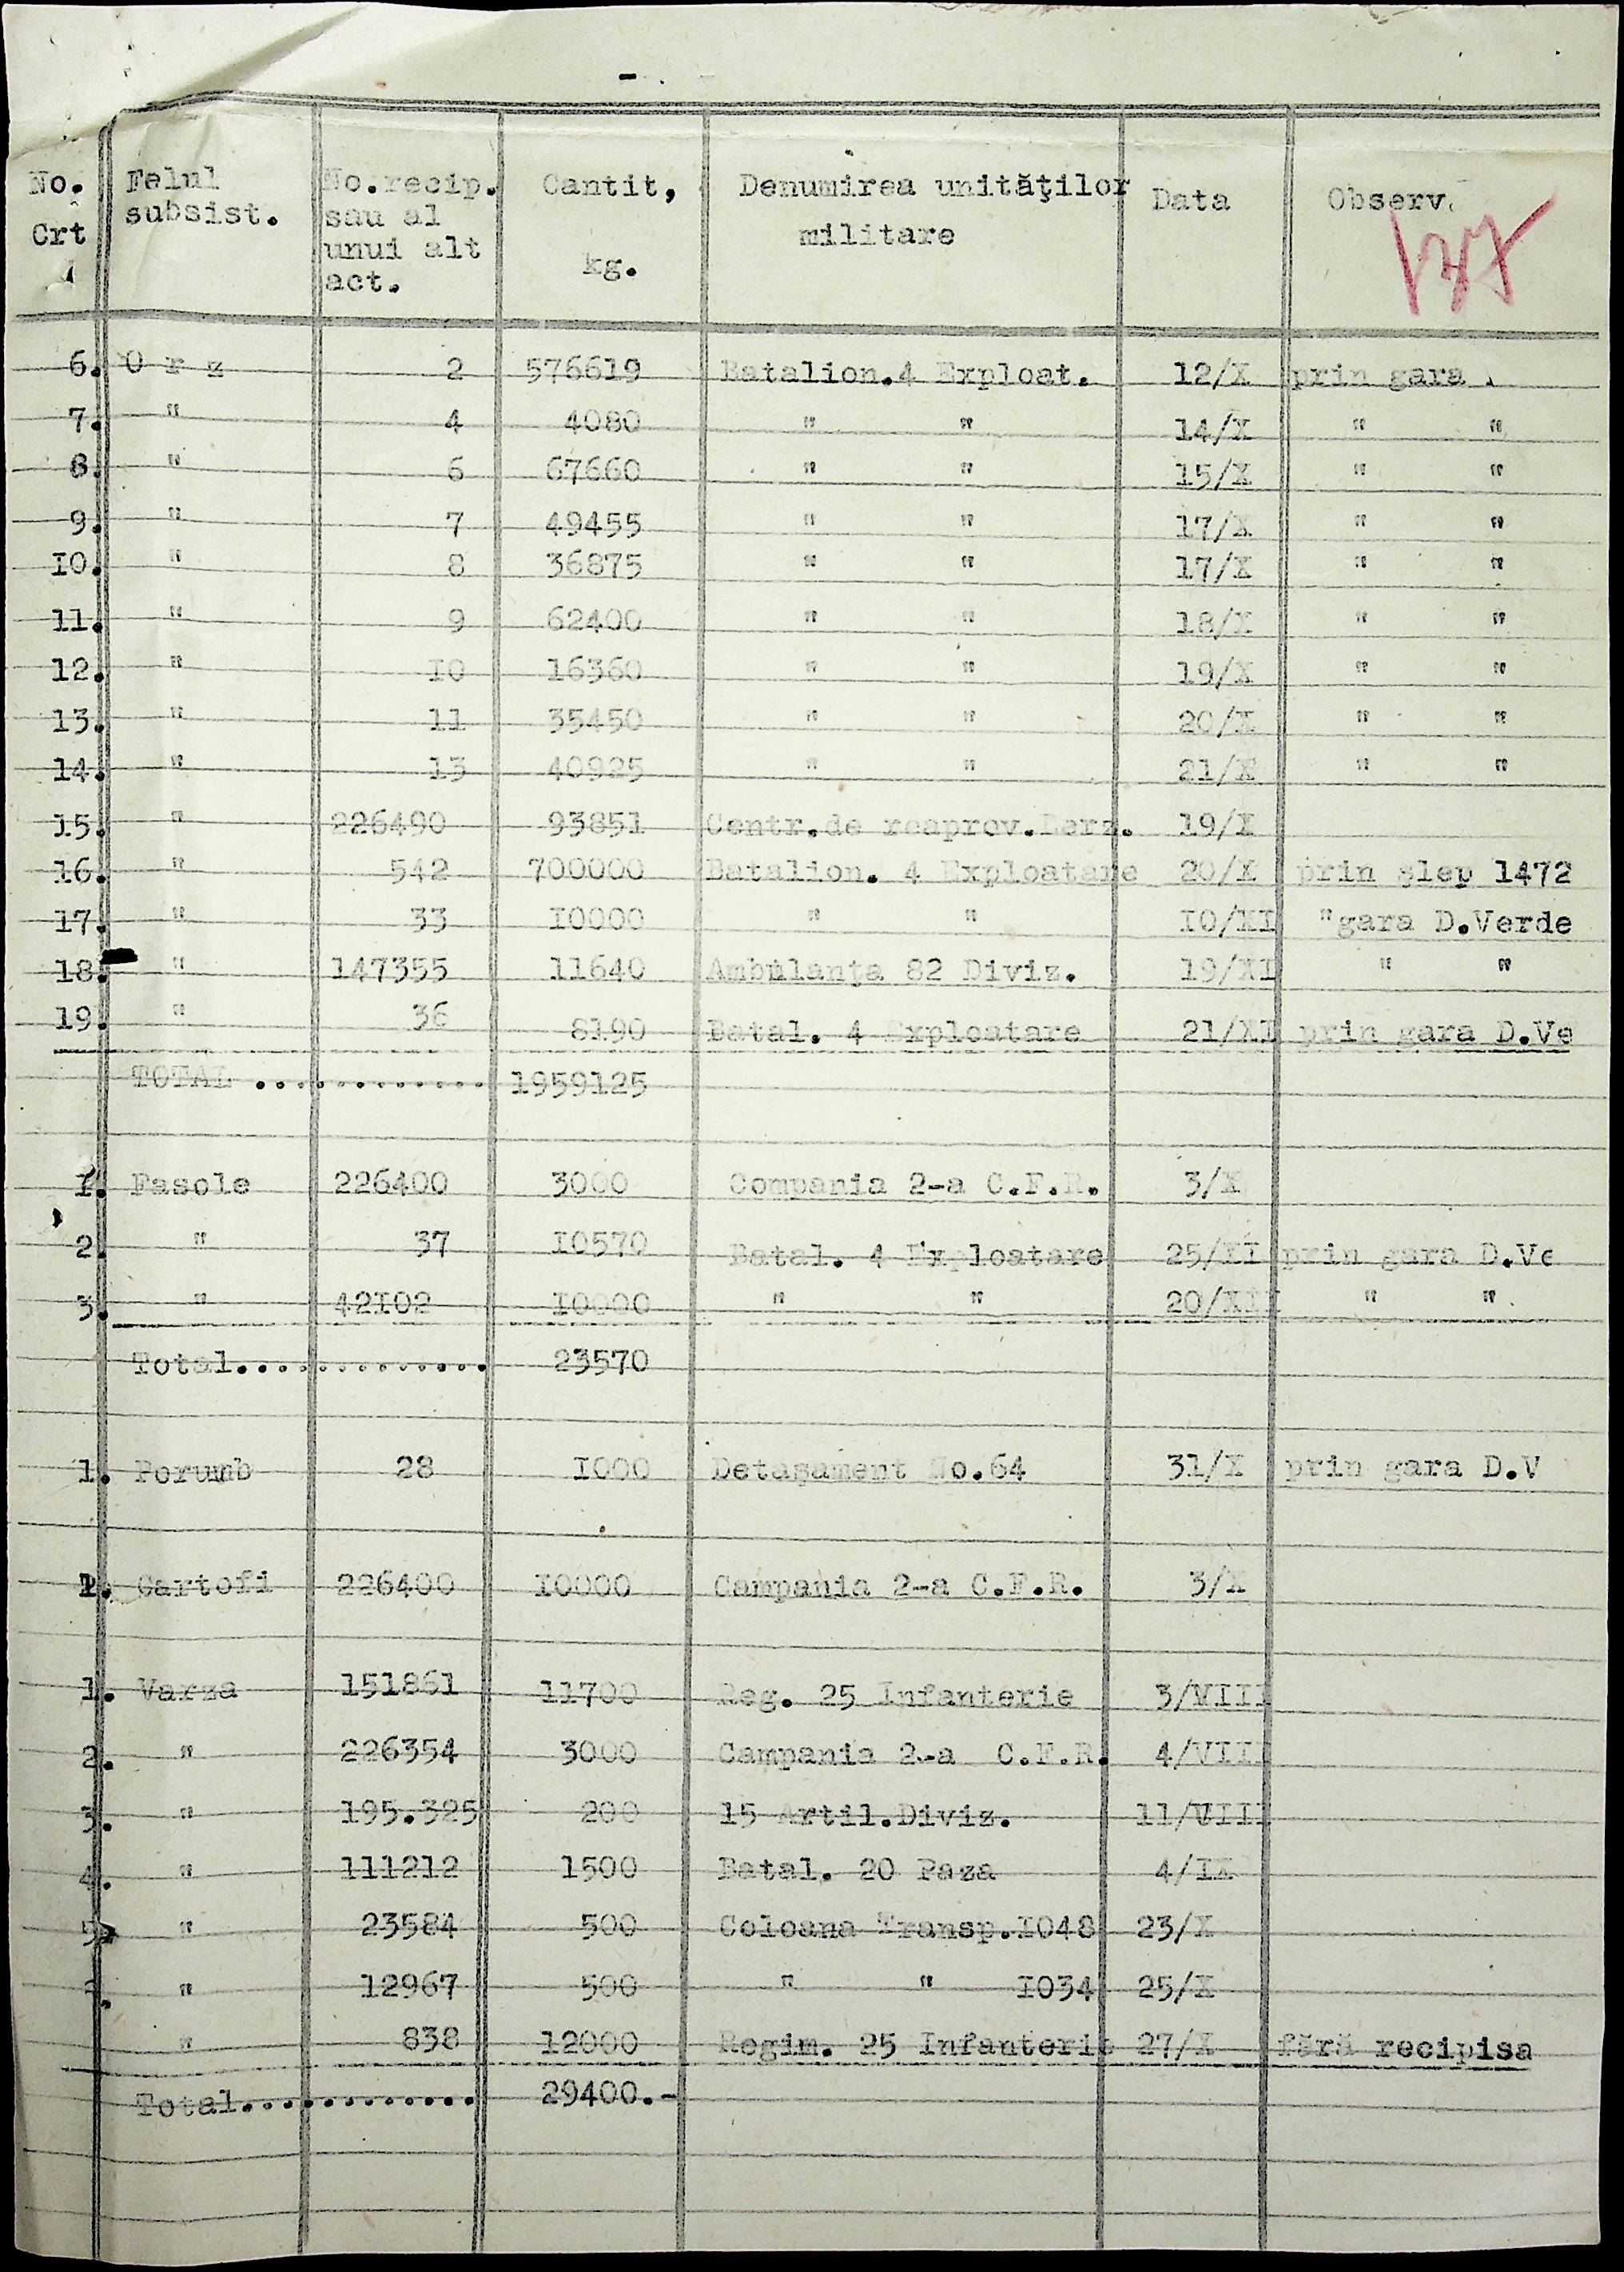 No. Crt | Felul subsist. | No.recip. sau al unui alt act. | Cantit, kg. | Denumirea unităţilor militare | Data | Observ.
137
6. O r z 2 576619 Batalion.4 Exploat. 12/X prin gara .
7. " 4 4080 " " 14/X " "
8. " 6 67660 " " 15/X " "
9. " 7 49455 " " 17/X " "
I0. " 8 36875 " " 17/X " "
11. " 9 62400 " " 18/X " "
12. " I0 16360 " " 19/X " "
13. " 11 35450 " " 20/X " "
14. " 13 40925 " " 21/X " "
15. " 226490 93851 Centr.de reaprov.Berz. 19/X
16. " 542 700000 Batalion. 4 Exploatare 20/X prin şlep 1472
17. " 33 I0000 " " I0/XI "gara D.Verde
18. " 147355 11640 Ambulanţa 82 Diviz. 19/XI " "
19. " 36 8190 Batal. 4 Exploatare 21/XI prin gara D.Ve
TOTAL ............ 1959125
1. Fasole 226400 3000 Compania 2-a C.F.R. 3/X
2. " 37 I0570 Batal. 4 Exploatare 25/XI prin gara D.Ve
3. " 42I02 I0000 " " 20/XII " "
Total............. 23570
1. Porumb 28 I000 Detaşament No.64 31/X prin gara D.V
1. Cartofi 226400 I0000 Campania 2-a C.F.R. 3/X
1. Varza 151861 11700 Reg. 25 Infanterie 3/VIII
2. " 226354 3000 Campania 2-a C.F.R. 4/VIII
3. " 195.325 200 15 Artil.Diviz. 11/VIII
4. " 111212 1500 Batal. 20 Paza 4/IX
5. " 23584 500 Coloana Transp.I048 23/X
" 12967 500 " " I034 25/X
" 838 12000 Regim. 25 Infanterie 27/X fără recipisa
Total............ 29400.-